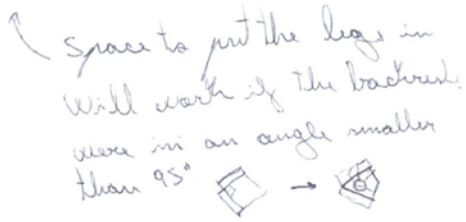 space to put the legs in
will work if the backrest
were in an angle smaller
than 95°